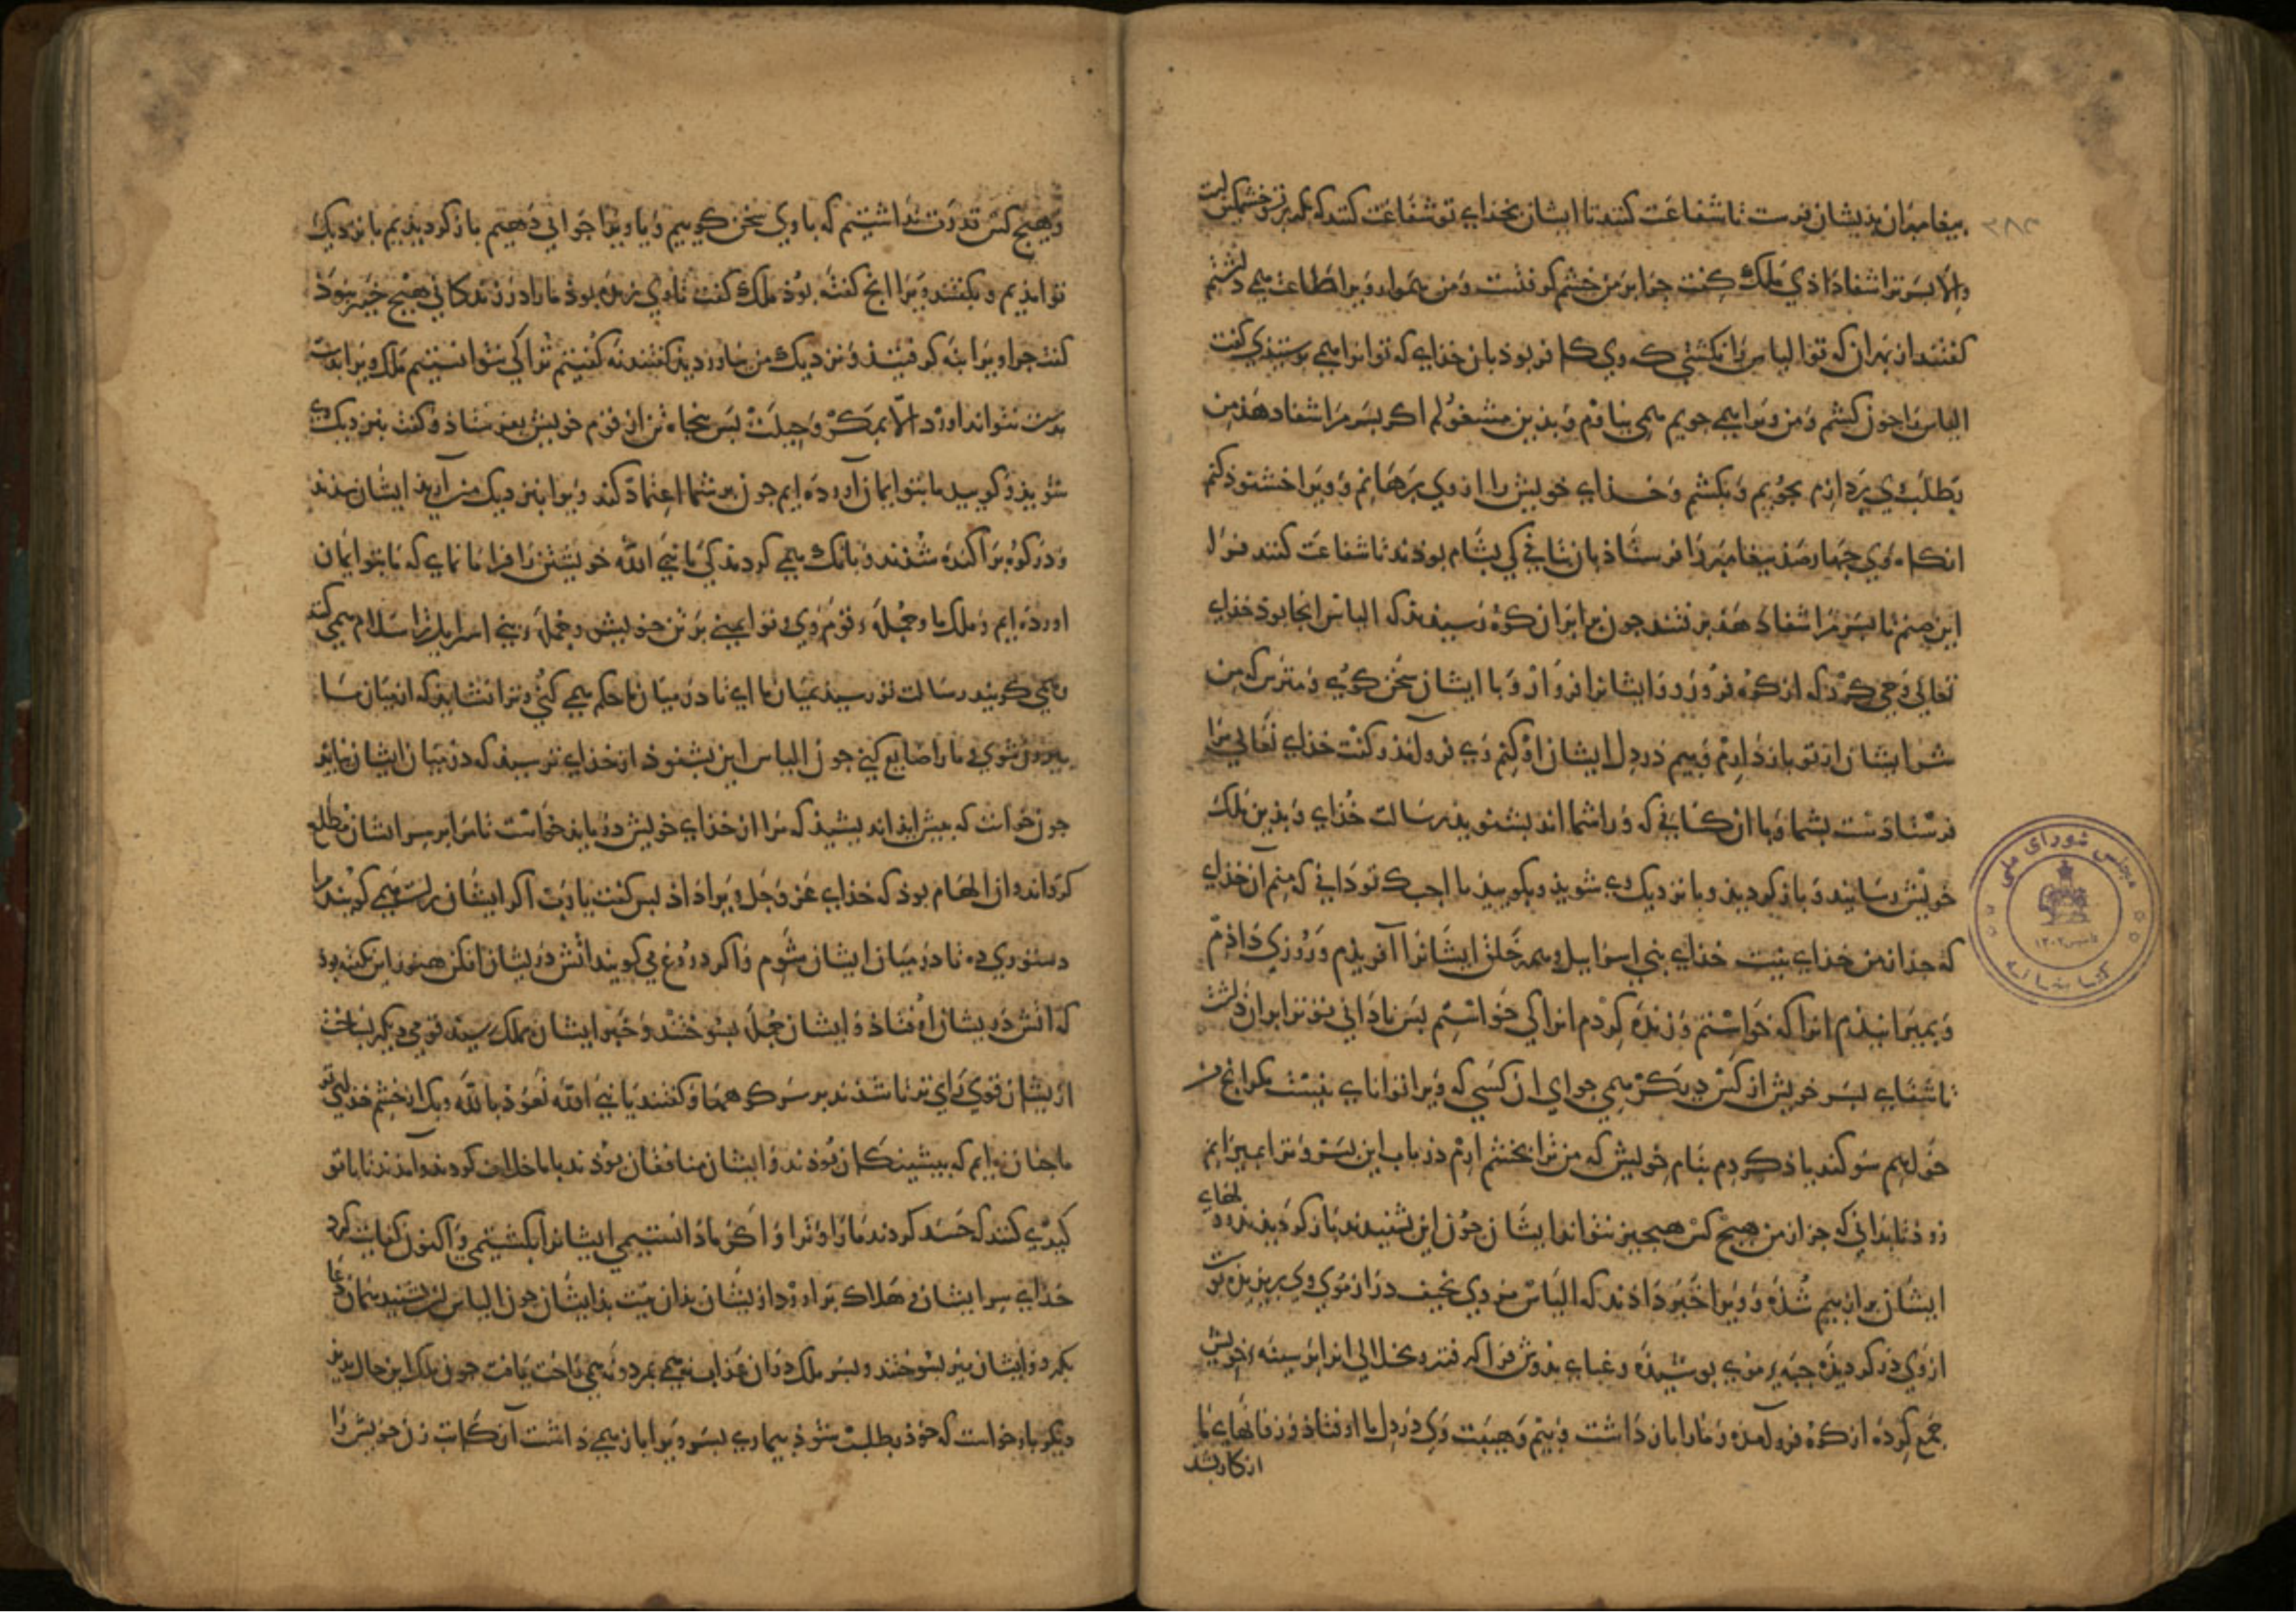 پیغامبران بذیشان فرست تا شفاعت کنند تا ایشان بخدای تو شفاعت کنند که مگر بر تو خشمگین است
والا پسر ترا شفا دادی ملک گفت چرا بر من خشم گرفتست و من همواره ویرا طاعت همی داشتم
گفتند از بهر آن که تو الیاس را نکشتی که وی کافر بوذ بان خدای که تو او را همی پرستیذی گفت
الیاس را چون کشم و من ویرا همی جویم همی نیاوم و بذین مشغولم اگر پسر مرا شفا دهذ من
بطلب وی پردازم بجویم و بکشم و خذای خویش را از وی برهانم و ویرا خشنوذ کنم
انکاه وی چهارصذ پیغامبر را فرستاذ بان بتانی کی بشام بوذند تا شفاعت کنند فرا
این صنم تا پسر مرا شفا دهذ برفتند چون برابر آن کوه رسیذند که الیاس انجا بوذ خذای
تعالی وحی کرد که از کوه فروذ رو و ایشانرا فرا او و با ایشان سخن گوی و مترس که من
شر ایشان از تو باز دارم و بیم در دل ایشان اوکنم وی فروآمذ و گفت خذای تعالی مرا
فرستادست بشما و با ان کسانی که ورا شما اند بشنویذ رسالت خذای و بذین ملک
خویش رسانیذ و باز گردیذ و با نزدیک وی شویذ و بگوییذ یا اجب تو دانی که منم آن خذای
که جذ از من خذای نیست خذای بنی اسرایل و همه خلق ایشانرا آفریذم و روزی داذم
و بمیرانیذم انرا که خواستم و زنده کردم انرا کی خواستم پس نادانی تو ترا بران داشت
تا شفای پسر خویش از کس دیگر همی جوای از کسی که ویرا توانای نیست مگر انچ من
خواهم سوکند یاذ کردم بنام خویش که من ترا بخشم ارم در باب این پسر و ترا بمیرانم
زوذ تا بدانی که جز از من هیچ کس هیچیز نتواند ایشان چون این بشنیدند باز گردیذند و دلهای
ایشان پر از بیم شده و ویرا خبر داذند که الیاس مردی نحیف دراز موی وی بریزیده پوست
از وی درکردیذه جبه موی پوشیذه و عبای بدوش فرا گرفته و بخلالی انرا بر سینه خویش
جمع کرده از کوه فروآمذ و ما را بان داشت و بیم و هیبت وی در دل ما اوفتاذ و زفانهای ما
از کار بشد
و هیچ کس قدرت نداشتیم که با وی سخن گوییم و یا ویرا جوابی دهیم باز گردیذیم با نزدیک
تو آمذیم و بگفتند ویرا انچ گفته بوذ ملک گفت تا وی زنده بوذ ما را در زندکانی هیچ خیر نبوذ
گفت چرا ویرا نه گرفتیذ و نزدیک من نیاوردیذ گفتند نه گفتیم ترا کی نتوانستیم ملک ویرا بدست
بدست نتواند اورد الا بمکر و حیلت پس پنجاه تن از قوم خویش بفرستاذ و گفت بنزدیک وی
شویذ و گوییذ ما بتو ایمان آورده ایم چون بر شما اعتماد کند ویرا بنزدیک من آریذ ایشان بشذند
و در کوه پراکنده شذند و بانک همی کردند کی یا نبی الله خویشتن را فرا ما نمای که ما بتو ایمان
اورده ایم و ملک ما و جمله قوم وی و تو ایمنی بر تن خویش و جمله بنی اسرایل ترا سلام همی کنند
و همی گویند رسالت تو رسیذ بمیان ما ای تا در میان ما حکم همی کنی و ترا نشایذ که از میان ما
بیرون شوی و ما را ضایع کنی چون الیاس این بشنوذ از خذای ترسیذ که در میان ایشان نیایذ
چون خواست که پیش ایذ اندیشیذ که مرا از خذای خویش در باید خواست تا مرا بر سر ایشان مطلع
کرداند و از الهام بوذ که خذای عز و جل ویرا داذ پس گفت یا رب اگر ایشان راست همی گویند مرا
دستوری ده تا در میان ایشان شوم و اگر دروغ می گویند اتش در یشان افکن هنوز این نگفته بوذ
که اتش در یشان اوفتاذ و ایشان جمله بسوختند و خبر ایشان بملک رسیذ قومی دیگر بساخت
ازیشان قوی رای تر تا شذند بر سر کوهها و گفتند یا نبی الله نعوذ بالله و بک از خشم خذای تو
ما چنان نه ایم که پیشینکان بوذند و ایشان منافقان بوذند با ما خلاف کردند و آمذند تا با تو
کیدی کنند که حسد کردند ما را و ترا و اگر ما دانستیمی ایشانرا بکشتیمی و اکنون کفایت کرد
خذای سر ایشان و هلاک براورد ازیشان بذان نیت بذ ایشان چون الیاس این بشنیذ همان دعا
بکرد و ایشان نیز بسوختند و پسر ملک در ان عذاب نه همی بمرد و نه همی راحت یافت چون ملک این حال بدید
دیگر بار خواست که خوذ بطلب شوذ بیماری پسر ویرا باز همی داشت آن کاتب زن خویش را
مجلس شورای ملی
کتابخانه
۱۳۰۲
۳۸۲